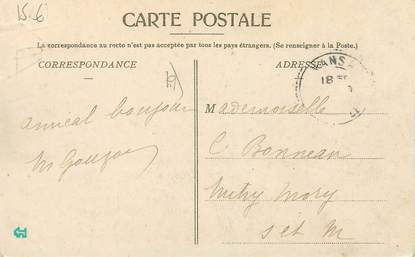 15.6
CARTE POSTALE
La correspondance au recto n'est pas acceptée par tous les pays étrangers. (Se renseigner à la Poste.)
CORRESPONDANCE
ADRESSE
18
amical bonjour
Mademoiselle
C. Bonneau
Mitry Mory
S et M